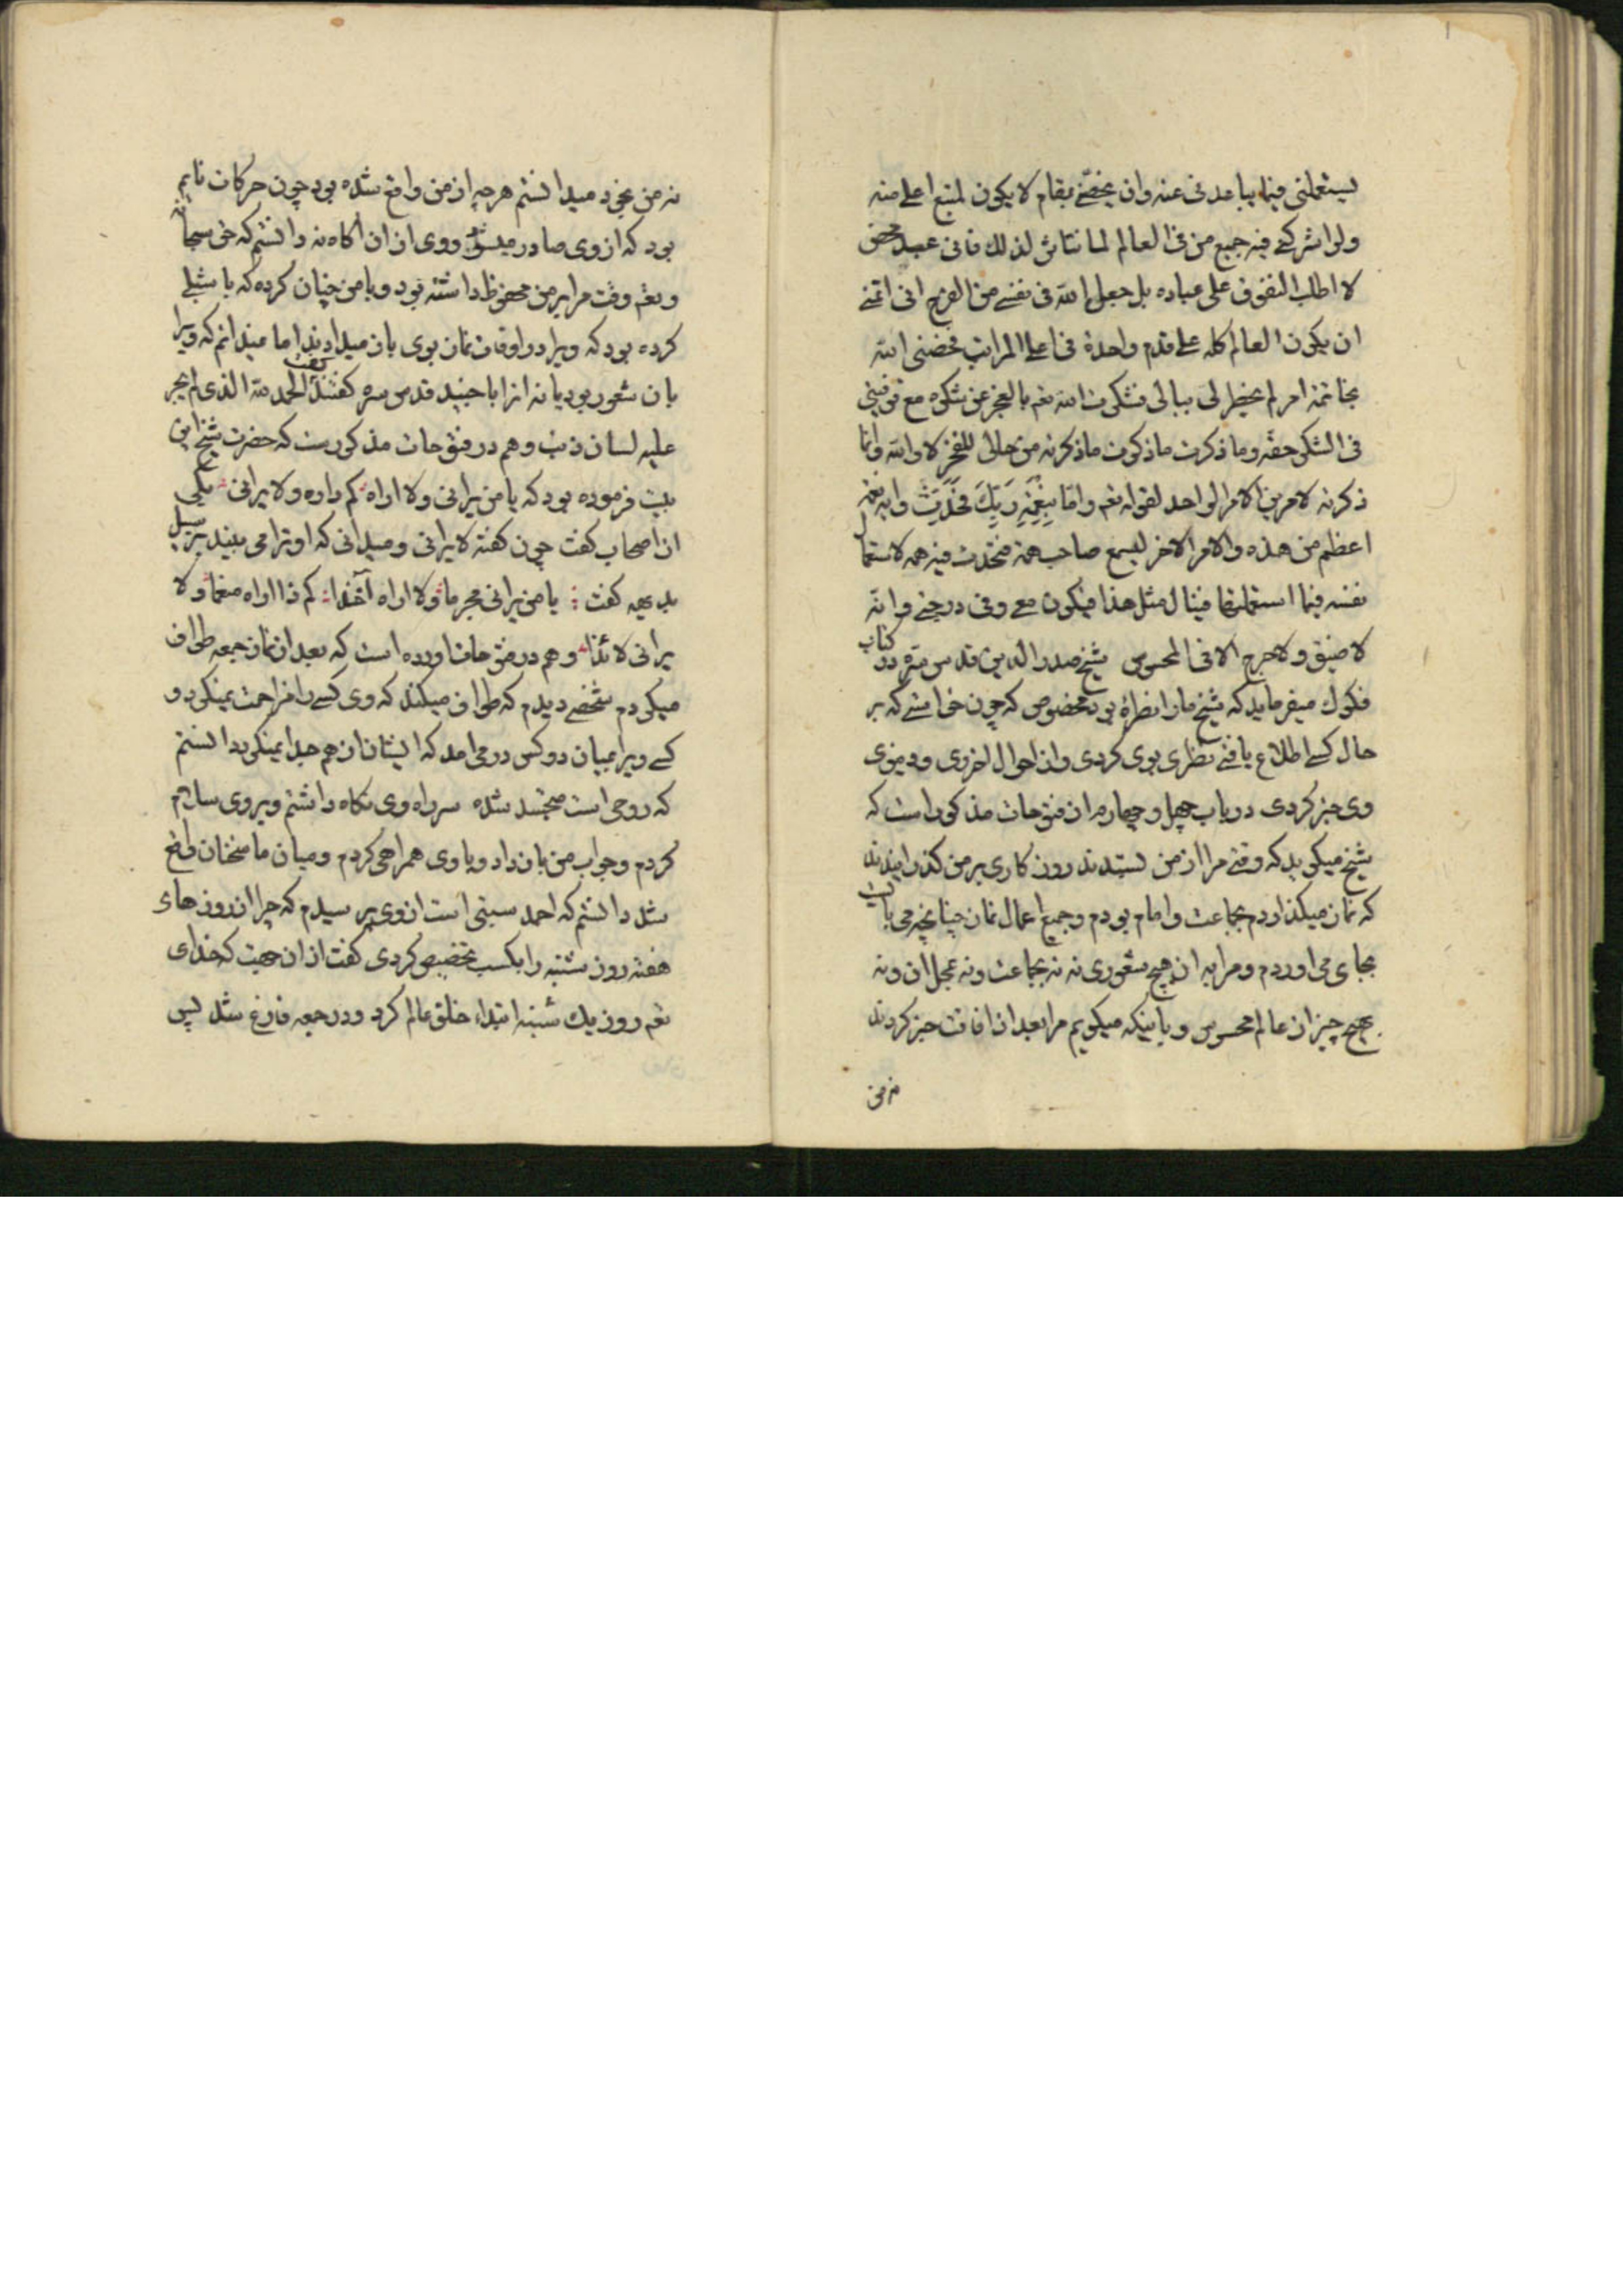 یستعملنی فیما یباعدنی عنه وان یخصّنی بمقام لا یکون لمتبع اعلی منه
ولو اشرکنی فیه جمیع من فی العالم لما نتاثر لذلک فانی عبد محض
لا اطلب التفوق علی عباده بل جعل الله فی نفسی من الفرح انی اتمنی
ان یکون العالم کله علی قدم واحدة فی اعلی المراتب فخصنی الله
بخاتمة امر لم یخطر لی ببالی فشکرت الله تعه بالعجز عن شکره مع توفیتی
فی الشکر حقه وما ذکرت ما ذکرت ما ذکرته من حالی للفخر لا والله وانما
ذکرته لامرین الامر الواحد لقوله تعه واما بِنِعْمَةِ رَبِّكَ فَحَدِّثْ وایه نعمة
اعظم من هذه والامر الاخر لیسمع صاحب همة فتحدث فیه همه لاستعمال
نفسه فیما استعملتها فینال مثل هذا فیکون معی وفی درجتی والله
لا ضیق ولا حرج الا فی المحسوس شیخ صدر الدین قدس سره در کتاب
فکوک میفرماید که شیخ ما را نظرهٔ بود مخصوص که چون خواستی که بر
حال کسی اطلاع یافتی نظری بوی کردی واز احوال اخروی ودنیوی
وی خبر کردی در باب چهل و چهارم از فتوحات مذکورست که
شیخ میکوید که وقتی مرا از من بستدند روز کاری بر من کذرانیدند
که نماز میکذاردم بجماعت وامام بودم وجمیع اعمال نماز چنانچه می بایست
بجای می اوردم ومرا به ان هیچ شعوری نه نه بجماعت ونه بمحل ان ونه
بهیچ چیز از عالم محسوس و باینکه میکویم مرا بعد از افاقت خبر کردند
نه من
نه من بخود میدانستم هرچه از من واقع شده بود چون حرکات نایم
بود که از وی صادر میشود ووی از ان اکاه نه دانستم که حق سبحانه
وتعه وقت مرا بر من محفوظ داشته بود وبا من چنان کرده که با شبلی
کرده بود که ویرا در اوقات نماز بوی باز میدادند اما نمیدانم که ویرا
بان شعور بود یا نه انرا با جنید قدس سره کفتند کفت الحمد لله الذی لم یجر
علیه لسان ذنب وهم در فتوحات مذکورست که حضرت شیخ این
بیت فرموده بود که یا من یرانی ولا اراه کم ذا اراه ولا یرانی یکی
از اصحاب کفت چون کفته لا یرانی ومیدانی که او ترا می بیند بر سبیل
بدیهه کفت یا من یرانی مجرما ولا اراه آخذا کم ذا اراه منعما ولا
یرانی لائذا وهم در فتوحات اورده است که بعد از نماز جمعه طواف
میکردم شخصی دیدم که طواف میکند که وی کسی را مزاحمت نمیکرد و
کسی ویرا بمیان دو کس در می امد که ایشان از هم جدا نمیکرد دانستم
که روحی است متجسد شده سر راه وی نکاه داشتم وبر وی سلام
کردم وجواب من باز داد و با وی همراهی کردم ومیان ما سخنان واقع
شد دانستم که احمد سبتی است از وی پرسیدم که چرا از روزهای
هفته روز شنبه را بکسب تخصیص کردی کفت از ان جهت که خدای
تعه روز یك شنبه ابتداء خلق عالم کرد ودر جمعه فارغ شد پس